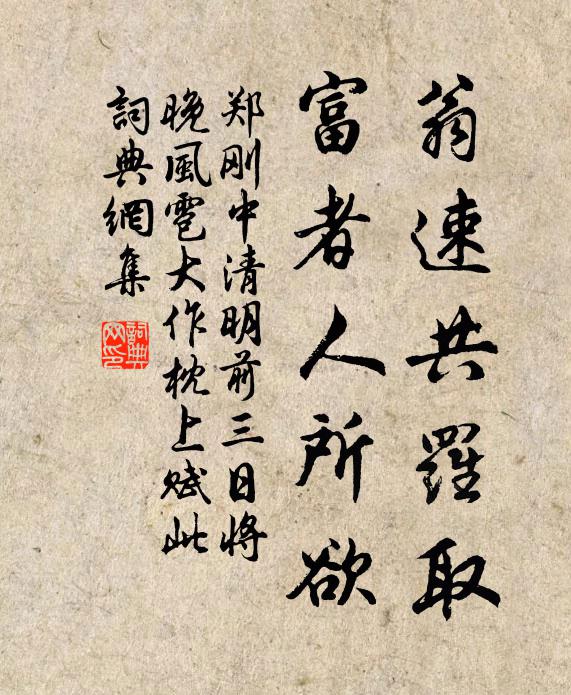 翁速共羅取
富者人所欲
郑刚中清明前三日將
晚風雹大作枕上赋此
詞典網集
詞典
网印